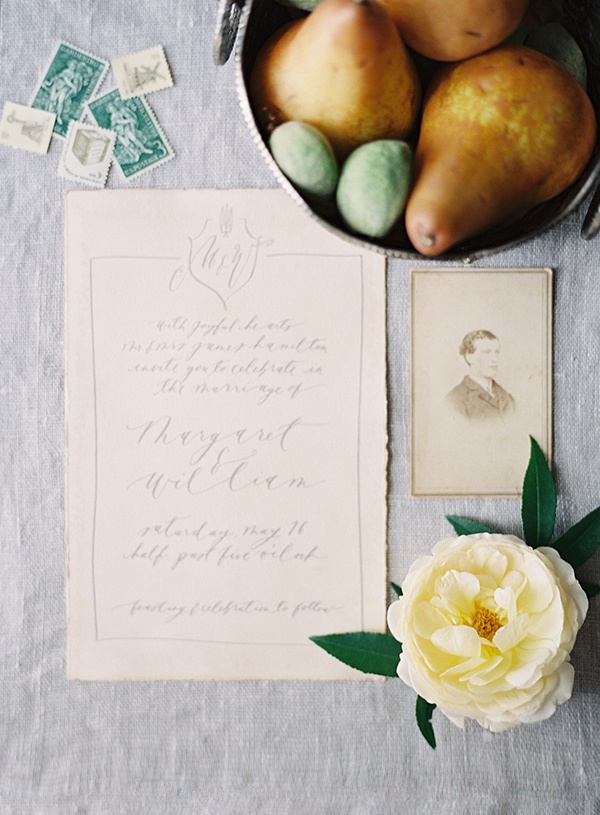 3
U.S. POSTAGE
M&W
with joyful hearts
Mr & Mrs James Hamilton
invite you to celebrate in
the marriage of
Margaret
&
William
saturday, may 16
half past five o'clock
feasting & celebration to follow